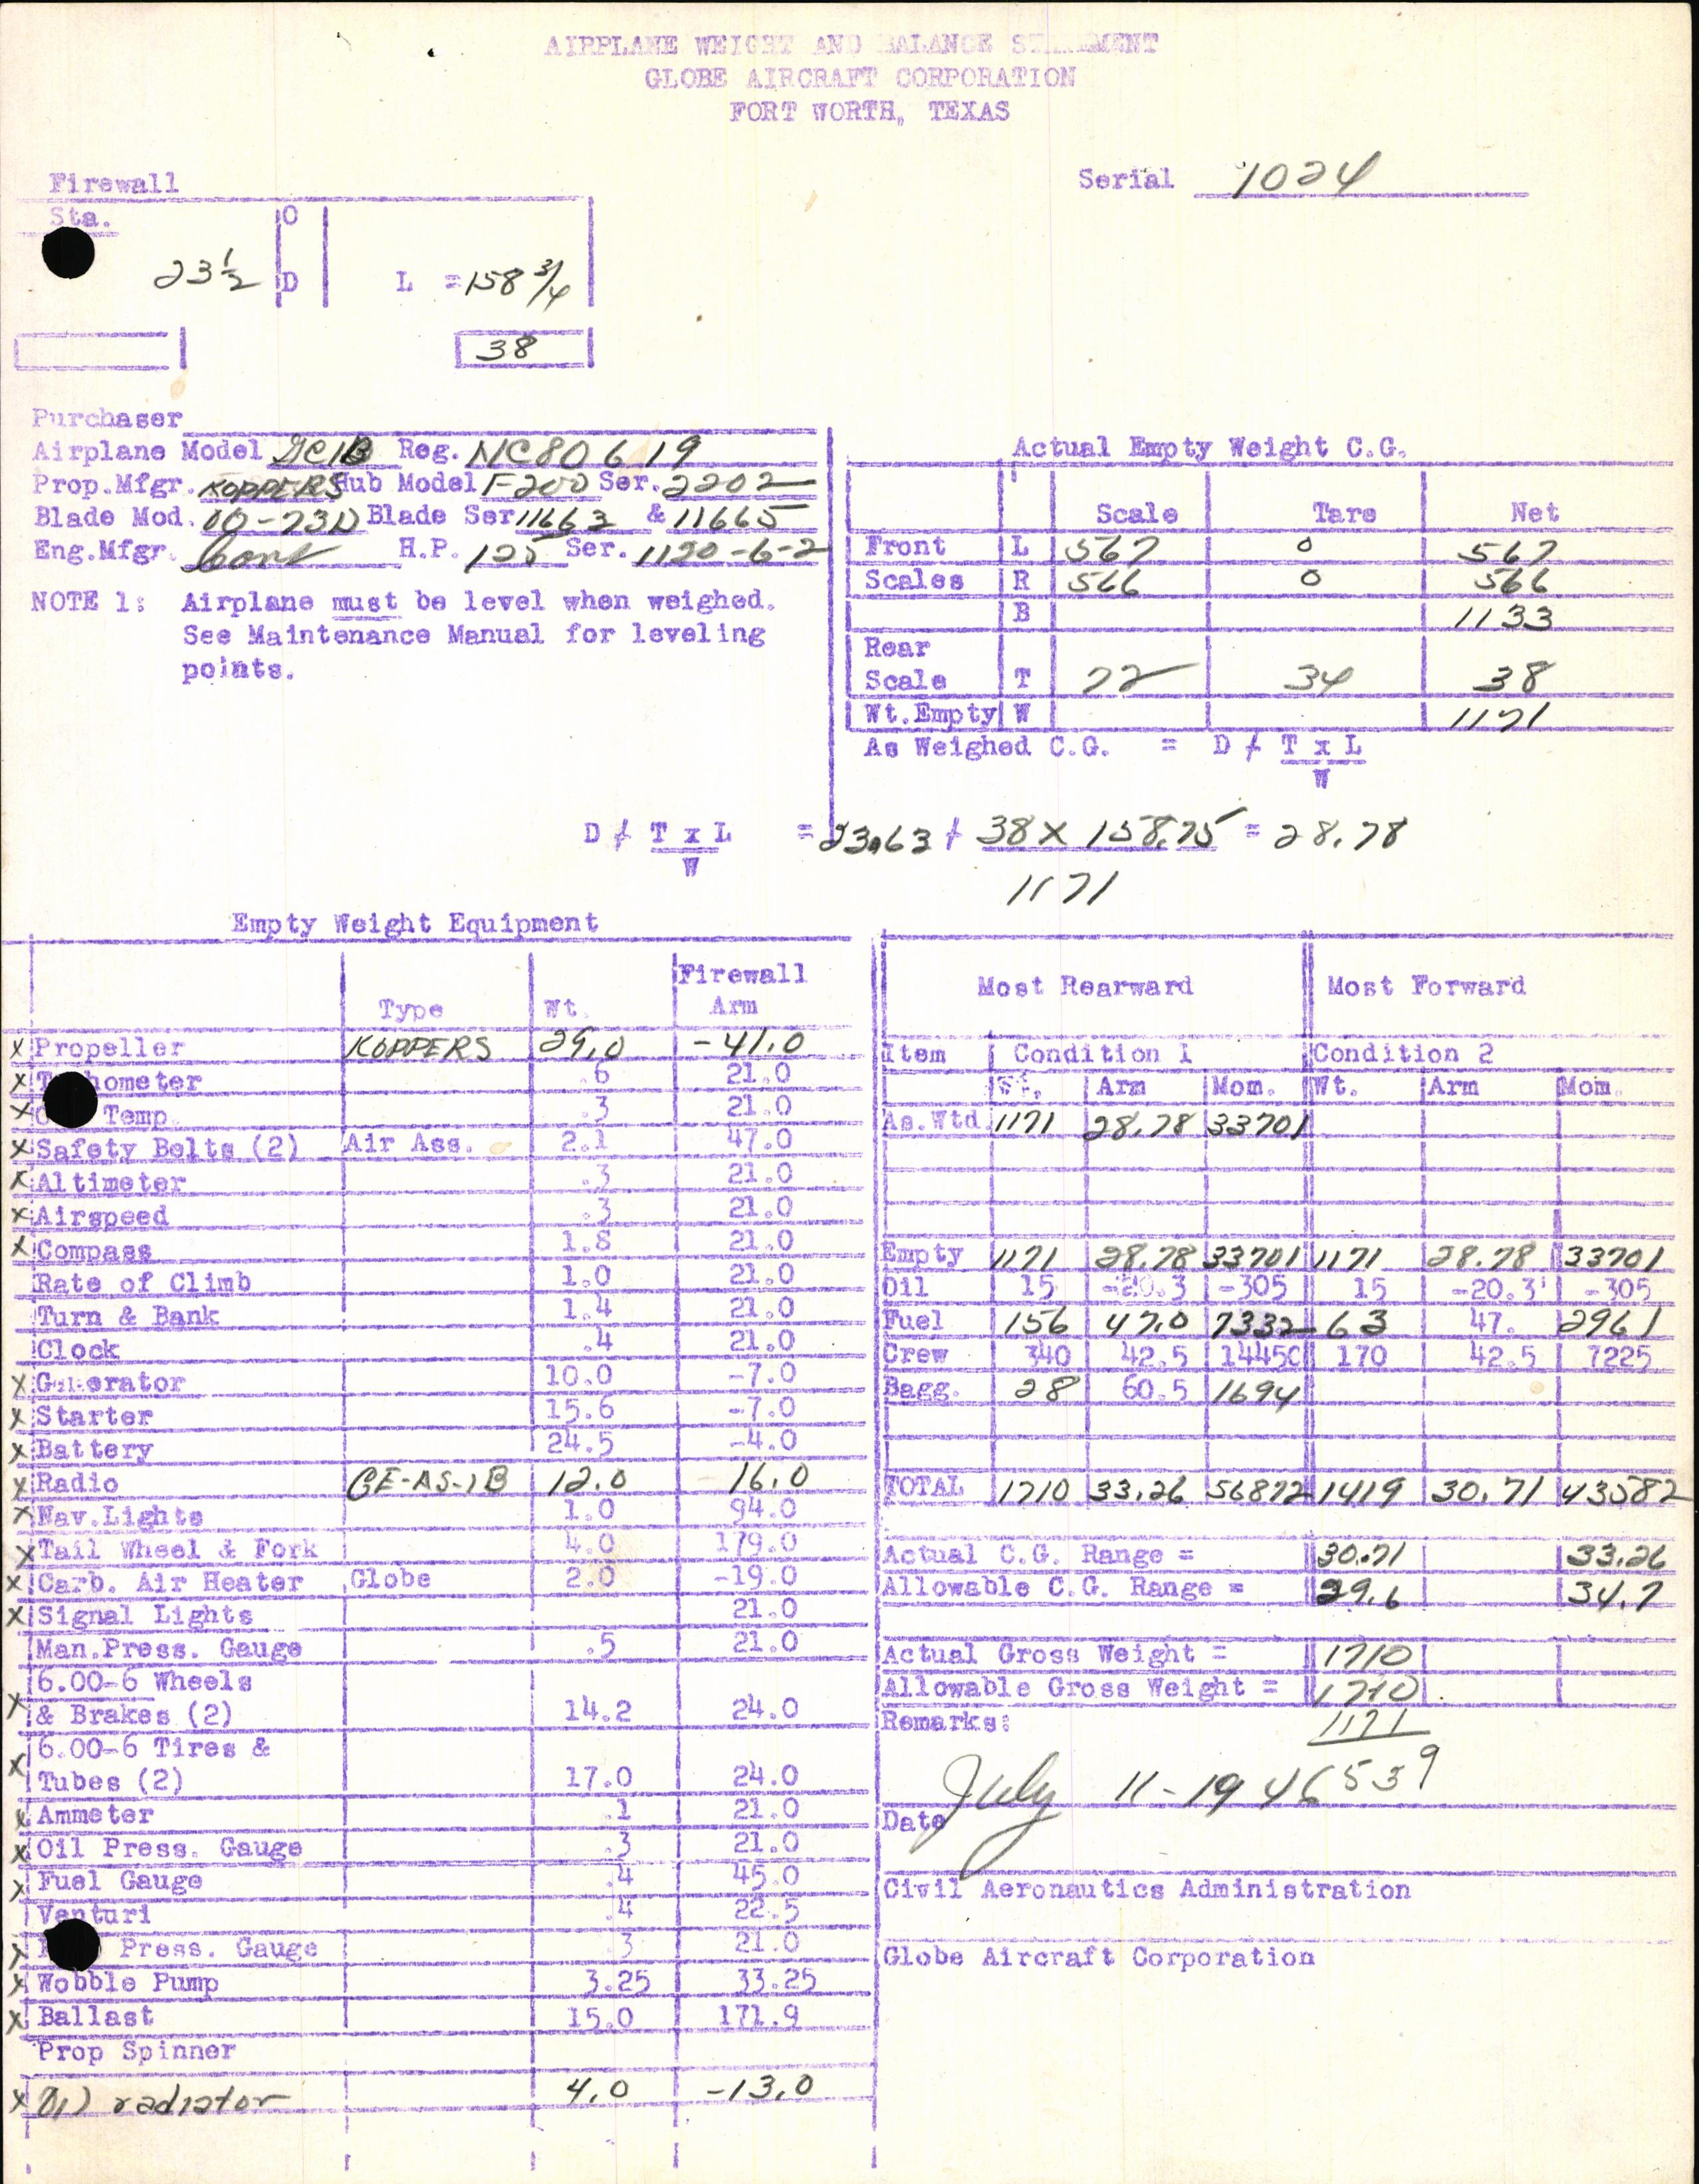 AIRPLANE WEIGHT AND BALANCE STATEMENT
GLOBE AIRCRAFT CORPORATION
FORT WORTH, TEXAS
Serial 1024
Firewall
Sta.
O
23 1/2 D L = 158 3/4
38
Purchaser
Airplane Model GC1B Reg. NC80619
Prop.Mfgr. KOPPERS Hub Model F200 Ser. 2202
Blade Mod. 00-73D Blade Ser 11663 & 11665
Eng.Mfgr. Cont H.P. 125 Ser. 1120-6-2
NOTE 1: Airplane must be level when weighed.
See Maintenance Manual for leveling
points.
Actual Empty Weight C.G.
Scale Tare Net
Front L 567 0 567
Scales R 566 0 566
B 1133
Rear
Scale T 72 34 38
Wt.Empty W 1171
As Weighed C.G. = D ≠ T x L
W
D ≠ T x L = 23.63 + 38 X 158.75 = 28.78
W 1171
Empty Weight Equipment
Type Wt. Firewall Arm
X Propeller KOPPERS 29.0 -41.0
X T hometer .6 21.0
X O Temp. .3 21.0
X Safety Belts (2) Air Ass. 2.1 47.0
X Altimeter .3 21.0
X Airspeed .3 21.0
X Compass 1.8 21.0
Rate of Climb 1.0 21.0
Turn & Bank 1.4 21.0
Clock .4 21.0
X Generator 10.0 -7.0
X Starter 15.6 -7.0
X Battery 24.5 -4.0
X Radio GE-AS-1B 12.0 16.0
X Nav.Lights 1.0 94.0
X Tail Wheel & Fork 4.0 179.0
X Carb. Air Heater Globe 2.0 -19.0
X Signal Lights 21.0
Man.Press. Gauge .5 21.0
6.00-6 Wheels
X & Brakes (2) 14.2 24.0
6.00-6 Tires &
X Tubes (2) 17.0 24.0
X Ammeter .1 21.0
X Oil Press. Gauge .3 21.0
X Fuel Gauge .4 45.0
Venturi .4 22.5
X Press. Gauge .3 21.0
X Wobble Pump 3.25 33.25
X Ballast 15.0 171.9
Prop Spinner
X Oil radiator 4.0 -13.0
Most Rearward Most Forward
Item Condition 1 Condition 2
Wt. Arm Mom. Wt. Arm Mom.
As.Wtd 1171 28.78 33701
Empty 1171 28.78 33701 1171 28.78 33701
Oil 15 -20.3 -305 15 -20.3 -305
Fuel 156 47.0 7332 63 47. 2961
Crew 340 42.5 14450 170 42.5 7225
Bagg. 28 60.5 1694
TOTAL 1710 33.26 56872 1419 30.71 43582
Actual C.G. Range = 30.71 33.26
Allowable C.G. Range = 29.6 34.7
Actual Gross Weight = 1710
Allowable Gross Weight = 1710
Remarks: 1171
539
Date July 11-1946
Civil Aeronautics Administration
Globe Aircraft Corporation